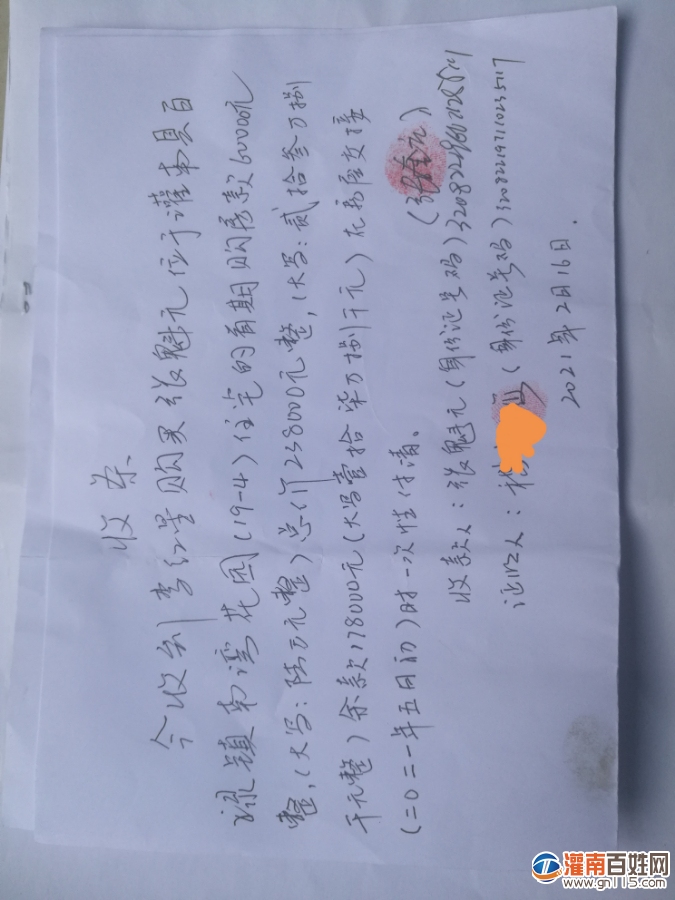 收条
今收到李红星购买张魁元位于灌南县百
禄镇南湾花园(19-4)住宅的首期购房款60000元
整,(大写:陆万元整)总价238000元整,(大写:贰拾叁万捌
千元整)余款178000元(大写壹拾柒万捌千元)在房屋交接
(二0二一年五月初)时一次性付清。
收款人:张魁元(身份证号码)
证明人:(身份证号码)
2021年2月16日.
灌南百姓网
www.gn115.com